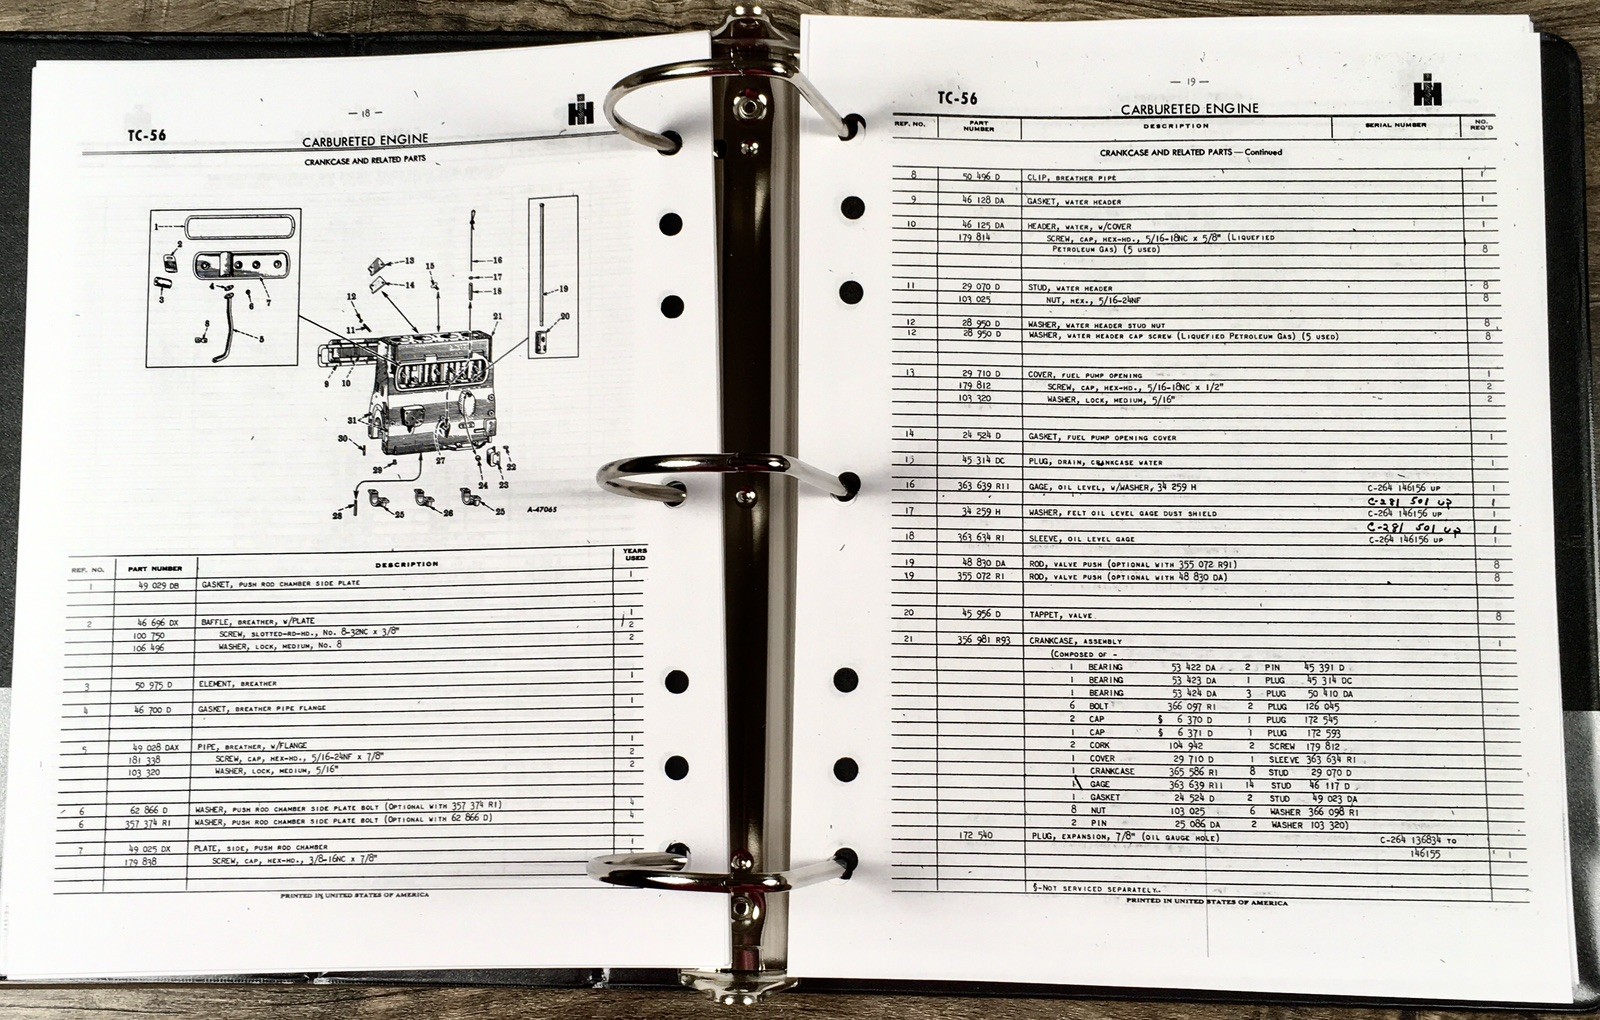 — 18 —
TC-56
CARBURETED ENGINE
CRANKCASE AND RELATED PARTS
1
2
3
4
5
6
7
8
9
10
11
12
13
14
15
16
17
18
19
20
21
22
23
24
25
26
25
27
28
29
30
31
A-47065
REF. NO. PART NUMBER DESCRIPTION YEARS USED
1 49 029 DB GASKET, PUSH ROD CHAMBER SIDE PLATE 1
2 46 696 DX BAFFLE, BREATHER, W/PLATE 1
100 750 SCREW, SLOTTED-RD-HD., NO. 8-32NC X 3/8" 2
106 496 WASHER, LOCK, MEDIUM, NO. 8 2
3 50 975 D ELEMENT, BREATHER 1
4 46 700 D GASKET, BREATHER PIPE FLANGE 1
5 49 028 DAX PIPE, BREATHER, W/FLANGE 1
181 338 SCREW, CAP, HEX-HD., 5/16-24NF X 7/8" 2
103 320 WASHER, LOCK, MEDIUM, 5/16" 2
6 62 866 D WASHER, PUSH ROD CHAMBER SIDE PLATE BOLT (OPTIONAL WITH 357 374 R1) 4
6 357 374 R1 WASHER, PUSH ROD CHAMBER SIDE PLATE BOLT (OPTIONAL WITH 62 866 D) 4
7 49 025 DX PLATE, SIDE, PUSH ROD CHAMBER
179 838 SCREW, CAP, HEX-HD., 3/8-16NC X 7/8"
PRINTED IN UNITED STATES OF AMERICA
— 19 —
TC-56
CARBURETED ENGINE
REF. NO. PART NUMBER DESCRIPTION SERIAL NUMBER NO. REQ'D
CRANKCASE AND RELATED PARTS — Continued
8 50 496 D CLIP, BREATHER PIPE 1
9 46 128 DA GASKET, WATER HEADER 1
10 46 125 DA HEADER, WATER, W/COVER 1
179 814 SCREW, CAP, HEX-HD., 5/16-18NC X 5/8" (LIQUEFIED
PETROLEUM GAS) (5 USED) 8
11 29 070 D STUD, WATER HEADER 8
103 025 NUT, HEX., 5/16-24NF 8
12 28 950 D WASHER, WATER HEADER STUD NUT 8
12 28 950 D WASHER, WATER HEADER CAP SCREW (LIQUEFIED PETROLEUM GAS) (5 USED) 8
13 29 710 D COVER, FUEL PUMP OPENING 1
179 812 SCREW, CAP, HEX-HD., 5/16-18NC X 1/2" 2
103 320 WASHER, LOCK, MEDIUM, 5/16" 2
14 24 524 D GASKET, FUEL PUMP OPENING COVER 1
15 45 314 DC PLUG, DRAIN, CRANKCASE WATER 1
16 363 639 R11 GAGE, OIL LEVEL, W/WASHER, 34 259 H C-264 146156 UP 1
C-281 501 up 1
17 34 259 H WASHER, FELT OIL LEVEL GAGE DUST SHIELD C-264 146156 UP 1
C-281 501 up 1
18 363 634 R1 SLEEVE, OIL LEVEL GAGE C-264 146156 UP 1
19 48 830 DA ROD, VALVE PUSH (OPTIONAL WITH 355 072 R91) 8
19 355 072 R1 ROD, VALVE PUSH (OPTIONAL WITH 48 830 DA) 8
20 45 956 D TAPPET, VALVE 8
21 356 981 R93 CRANKCASE, ASSEMBLY 1
(COMPOSED OF -
1 BEARING 53 422 DA 2 PIN 45 391 D
1 BEARING 53 423 DA 1 PLUG 45 314 DC
1 BEARING 53 424 DA 3 PLUG 50 410 DA
6 BOLT 366 097 R1 2 PLUG 126 045
2 CAP § 6 370 D 1 PLUG 172 545
1 CAP § 6 371 D 1 PLUG 172 593
2 CORK 104 942 2 SCREW 179 812
1 COVER 29 710 D 1 SLEEVE 363 634 R1
1 CRANKCASE 365 586 R1 8 STUD 29 070 D
1 GAGE 363 639 R11 14 STUD 46 117 D
1 GASKET 24 524 D 2 STUD 49 023 DA
8 NUT 103 025 6 WASHER 366 098 R1
2 PIN 25 086 DA 2 WASHER 103 320)
172 540 PLUG, EXPANSION, 7/8" (OIL GAUGE HOLE) C-264 136834 TO
146155 1
§-NOT SERVICED SEPARATELY.
PRINTED IN UNITED STATES OF AMERICA